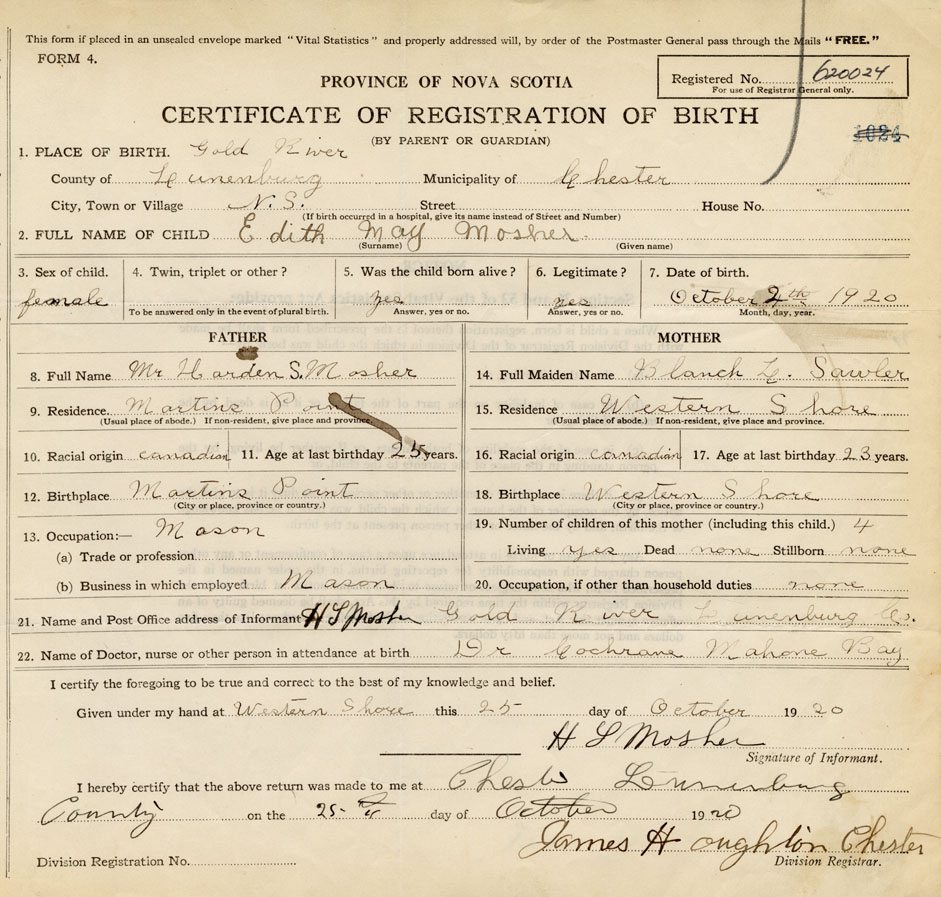 This form if placed in an unsealed envelope marked "Vital Statistics" and properly addressed will, by order of the Postmaster General pass through the Mails "FREE."
FORM 4.
Registered No. 620024
For use of Registrar General only.
PROVINCE OF NOVA SCOTIA
CERTIFICATE OF REGISTRATION OF BIRTH
(BY PARENT OR GUARDIAN)
1. PLACE OF BIRTH. Gold River
County of Lunenburg Municipality of Chester
City, Town or Village N.S. Street House No.
(If birth occurred in a hospital, give its name instead of Street and Number)
2. FULL NAME OF CHILD Edith May Mosher
(Surname) (Given name)
3. Sex of child. 4. Twin, triplet or other? 5. Was the child born alive? 6. Legitimate? 7. Date of birth.
female yes yes October 4th 1920
To be answered only in the event of plural birth. Answer, yes or no. Answer, yes or no. Month, day, year.
FATHER MOTHER
8. Full Name Mr Harden S. Mosher 14. Full Maiden Name Blanch L. Sawler
9. Residence. Martins Point 15. Residence Western Shore
(Usual place of abode.) If non-resident, give place and province. (Usual place of abode.) If non-resident, give place and province.
10. Racial origin canadian 11. Age at last birthday 25 years. 16. Racial origin canadian 17. Age at last birthday 23 years.
12. Birthplace Martins Point 18. Birthplace Western Shore
(City or place, province or country.) (City or place, province or country.)
13. Occupation:— Mason 19. Number of children of this mother (including this child.) 4
(a) Trade or profession Living yes Dead none Stillborn none
(b) Business in which employed Mason 20. Occupation, if other than household duties none
21. Name and Post Office address of Informant H S Mosher Gold River Lunenburg Co.
22. Name of Doctor, nurse or other person in attendance at birth Dr Cochrane Mahone Bay
I certify the foregoing to be true and correct to the best of my knowledge and belief.
Given under my hand at Western Shore this 25 day of October 1920
H S Mosher
Signature of Informant.
I hereby certify that the above return was made to me at Chester Lunenburg
County on the 25th day of October 1920
James H Oughton Chester
Division Registration No. Division Registrar.